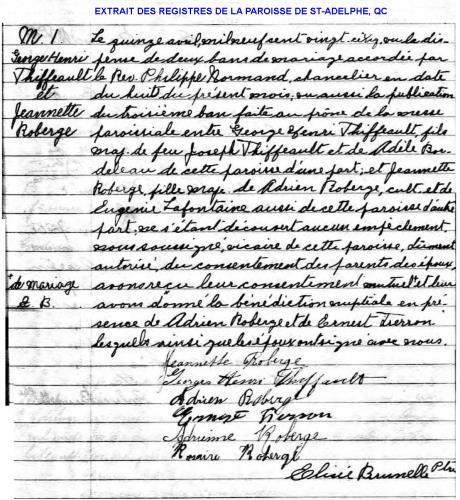 EXTRAIT DES REGISTRES DE LA PAROISSE DE ST-ADELPHE, QC
M. 1
George Henri
Thiffeault
et
Jeannette
Roberge
Le quinze avril, mil neuf cent vingt six, vu la dis-
pense de deux bans de mariage accordée par
le Rev. Philippe Normand, chancelier en date
du huit du présent mois, vu aussi la publication
du troisième ban faite au prône de la messe
paroissiale entre George Henri Thiffeault, fils
maj. de feu Joseph Thiffeault et de Adèle Bor-
deleau de cette paroisse d'une part; et Jeannette
Roberge, fille maj. de Adrien Roberge, cult. et de
Eugenie Lafontaine aussi de cette paroisse d'autre
part, ne s'étant découvert aucun empêchement
nous soussigné, vicaire de cette paroisse, dûment
autorisé, du consentement des parents des époux,
avons reçu leur consentement mutuel * et leur
avons donné la bénédiction nuptiale en pré-
sence de Adrien Roberge et de Ernest
lesquels ainsi que les époux ont signé avec nous.
* de mariage
E. B.
Jeannette Roberge
Georges Henri Thiffeault
Adrien Roberge
Ernest
Adrienne Roberge
Rosaire Roberge
Elisée Brunelle Ptre